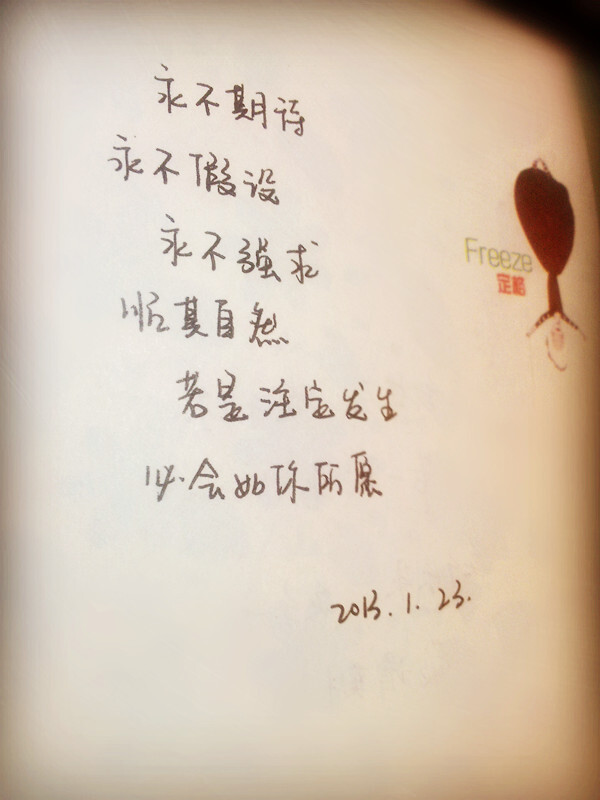 永不期待
永不假设
永不强求
顺其自然
若是注定发生
必会如你所愿
2013.1.23.
Freeze
定格